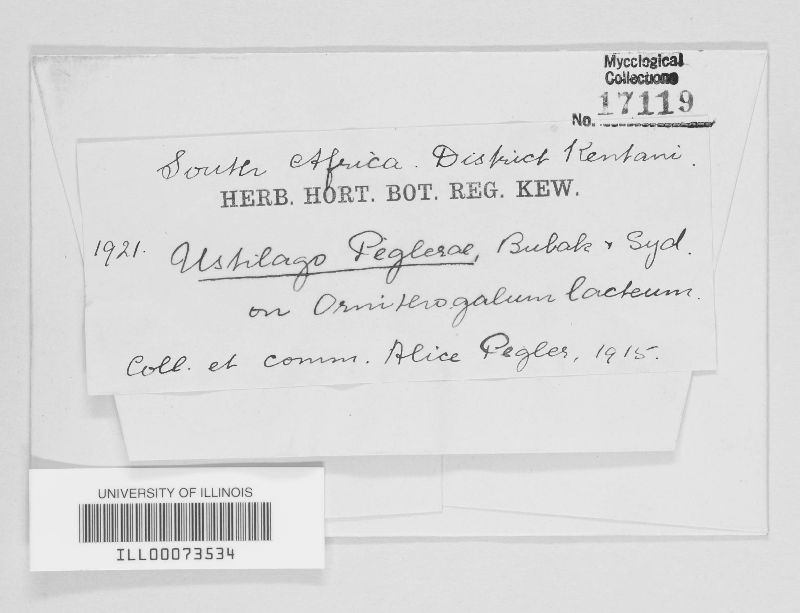 Mycological
Collections
No. 17119
South Africa. District Kentani.
HERB. HORT. BOT. REG. KEW.
1921. Ustilago Peglerae, Bubak & Syd.
on Ornithogalum lacteum.
Coll. et comm. Alice Pegler, 1915.
UNIVERSITY OF ILLINOIS
ILL00073534